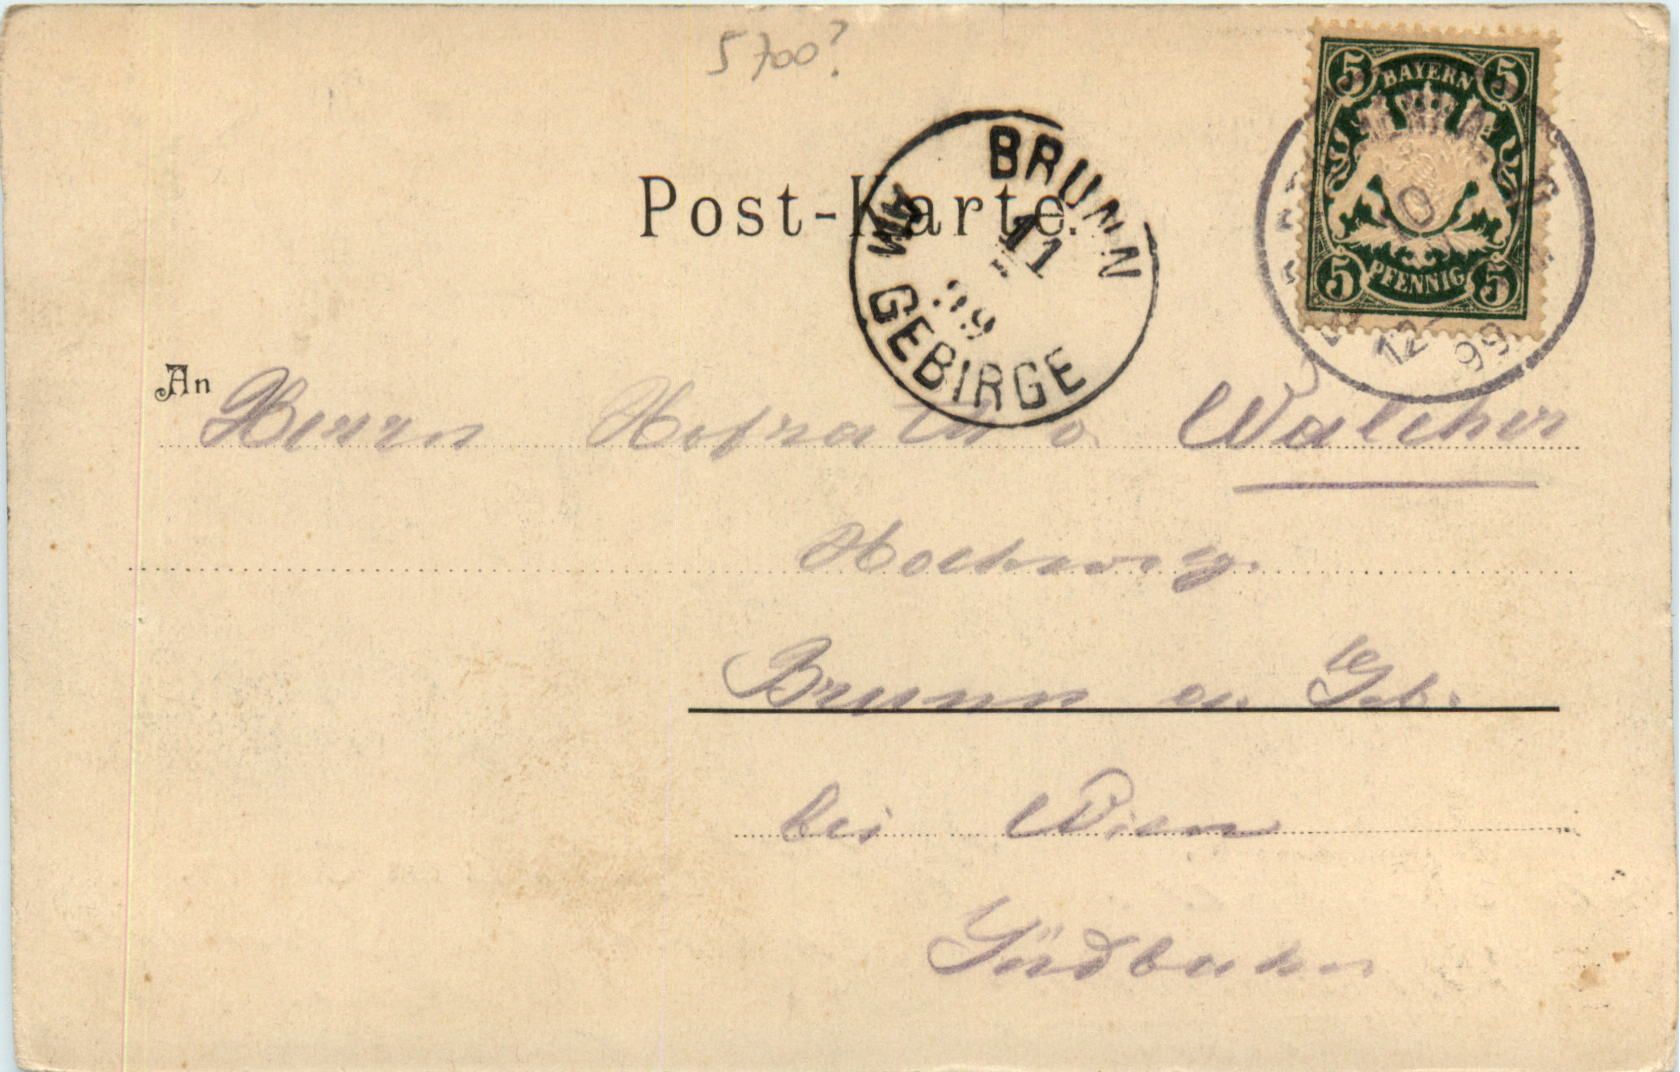 5700?
Post-Karte.
BRUNN
AM GEBIRGE
11
99
5 BAYERN 5
5 PFENNIG 5
12
99
An Herrn Hofrath v. Walcher
Hochweg.
Brunn a. Geb.
bei Wien
Südbahn